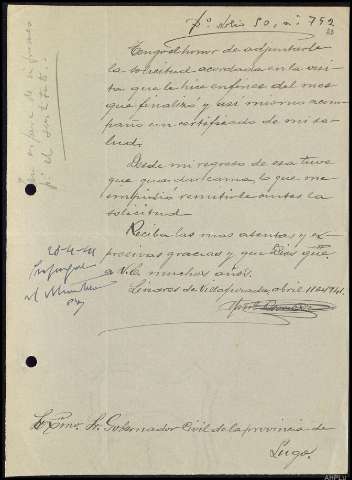 50, nº 792
Tengo el honor de adjuntarle
la solicitud acordada en la visi-
ta que le hice en fines del mes
que finalizó y así mismo acom-
paño un certificado de mi sa-
lud.
Desde mi regreso de esa tuve
que guardar cama, lo que me
impidió remitirle antes la
solicitud.
Reciba las mas atentas y ex-
presivas gracias y que Dios gue.
a V. muchos años.
Linares de Vilafurada, abril 1 de 1941.
Excmo. Sr. Gobernador Civil de la provincia de
Lugo.
AHPLu